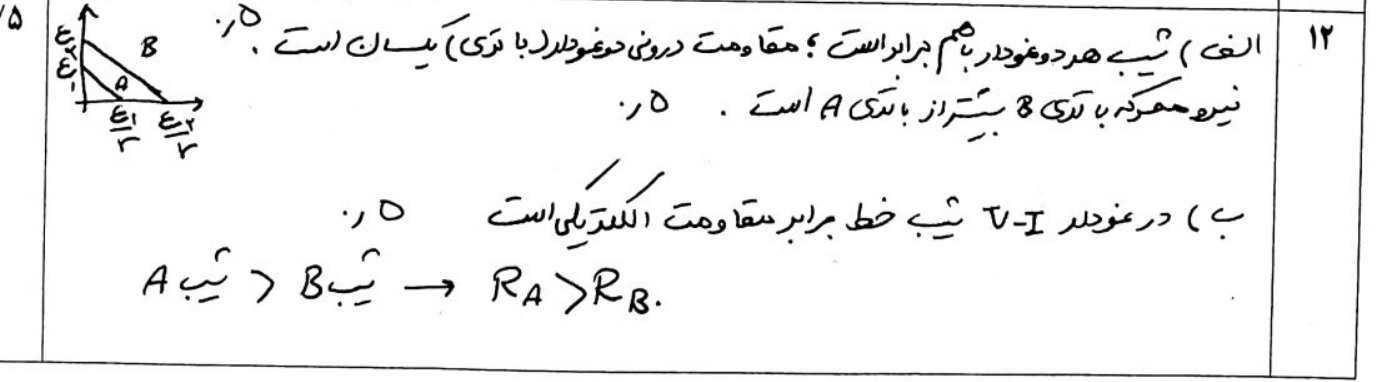 ۱۲
الف) شیب هر دو نمودار باهم برابر است ؛ مقاومت درونی دو نمودار (با تری) یکسان است . ۰٫۵
نیرو محرکه باتری B بیشتر از باتری A است . ۰٫۵
B
A
ε۲
ε۱
ε۱/r ε۲/r
ب) در نمودلر V-I شیب خط برابر مقاومت الکتریکی است ۰٫۵
A شیب > B شیب → R_A > R_B.